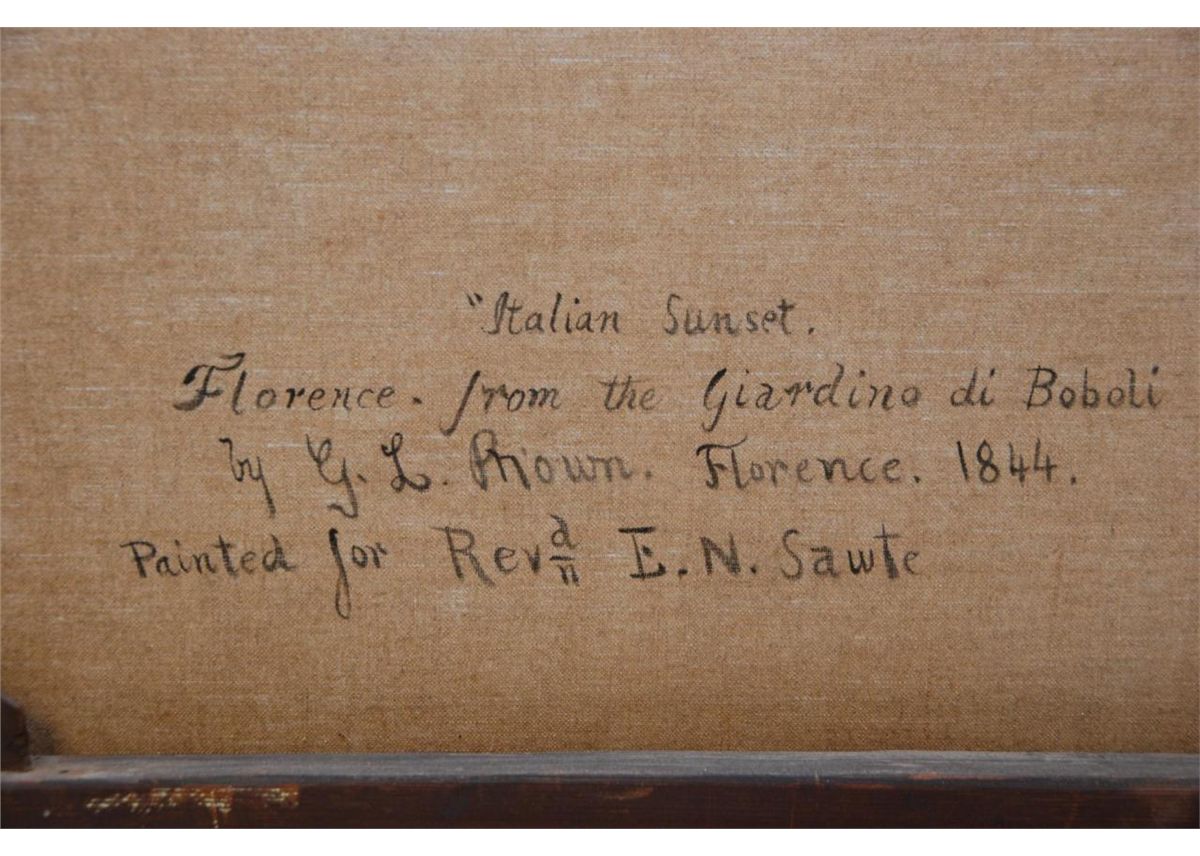 "Italian Sunset.
Florence. from the Giardino di Boboli
by G. L. Brown. Florence. 1844.
Painted for Rev d/n E. N. Sawte